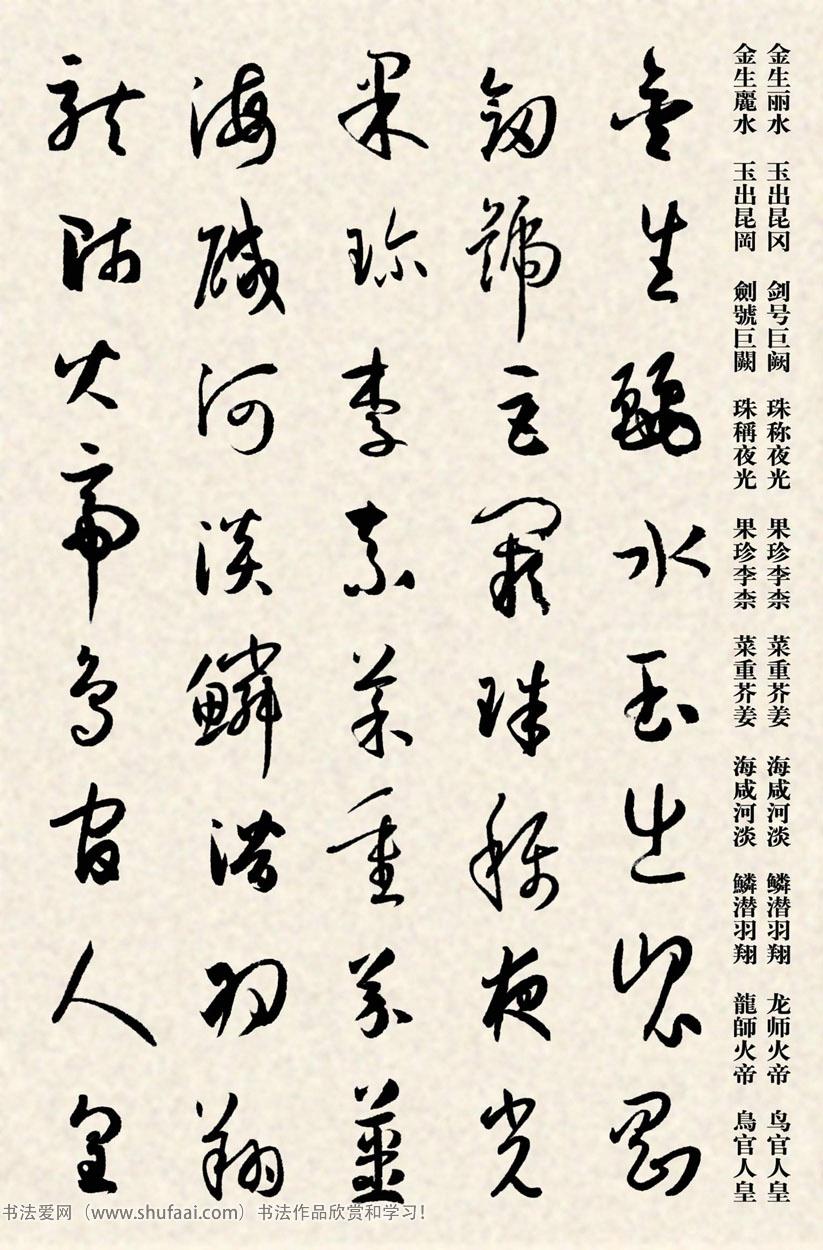 金生丽水 玉出昆冈 剑号巨阙 珠称夜光 果珍李柰 菜重芥姜 海咸河淡 鳞潜羽翔 龙师火帝 鸟官人皇
金生麗水 玉出昆岡 劍號巨闕 珠稱夜光 果珍李柰 菜重芥姜 海咸河淡 鱗潜羽翔 龍師火帝 鳥官人皇
金生麗水玉出崑岡
劍號巨闕珠稱夜光
果珍李柰菜重芥薑
海醎河淡鱗潜羽翔
龍師火帝鳥官人皇
书法爱网（www.shufaai.com）书法作品欣赏和学习！